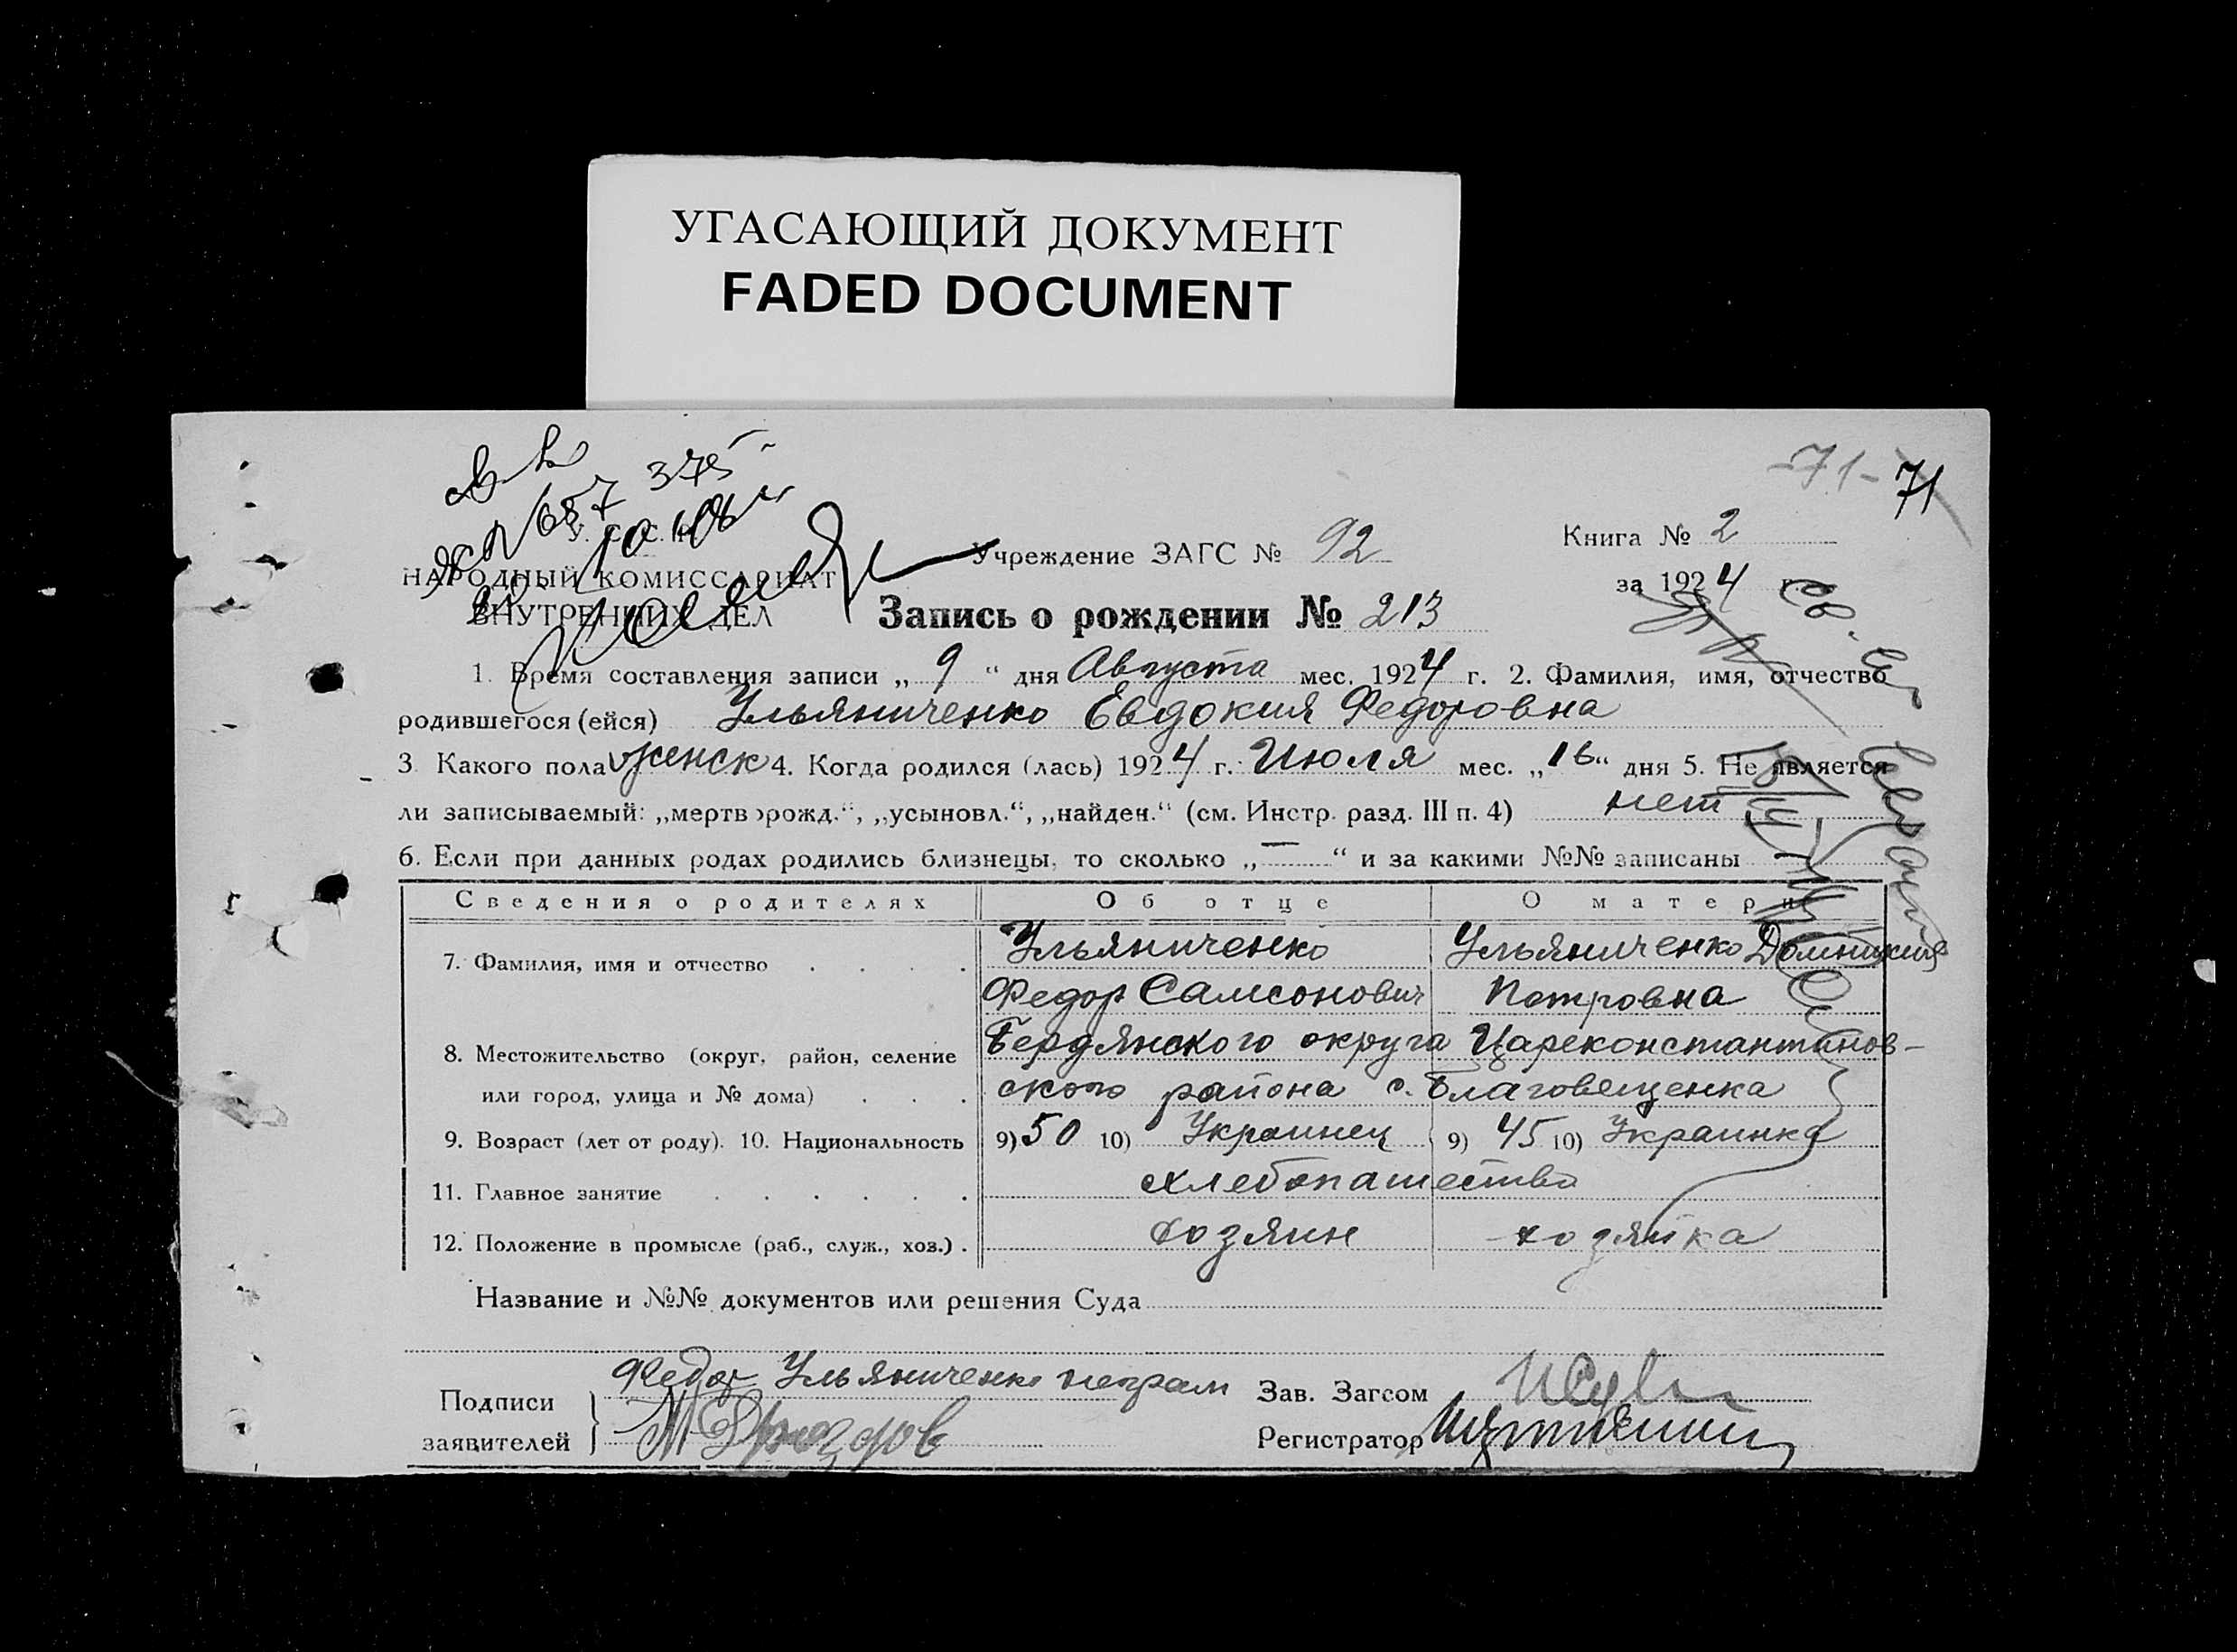 УГАСАЮЩИЙ ДОКУМЕНТ
FADED DOCUMENT
-71- 71
375
№ 657
У. С. С. Р.
НАРОДНЫЙ КОМИССАРИАТ
ВНУТРЕННИХ ДЕЛ
Учреждение ЗАГС № 92
Книга № 2
за 1924 г.
Запись о рождении № 213
1. Время составления записи „ 9 “ дня Августа мес. 1924 г. 2. Фамилия, имя, отчество
родившегося (ейся) Ульяниченко Евдокия Федоровна
3. Какого пола женск 4. Когда родился (лась) 1924 г. Июля мес. „16“ дня 5. Не является
ли записываемый: „мертворожд.“, „усыновл.“, „найден.“ (см. Инстр. разд. III п. 4) нет
6. Если при данных родах родились близнецы, то сколько „—“ и за какими №№ записаны
Сведения о родителях Об отце О матери
7. Фамилия, имя и отчество . . . . Ульяниченко Ульяниченко
Федор Самсонович Петровна
8. Местожительство (округ, район, селение Бердянского округа Цареконстантинов-
или город, улица и № дома) . . . ского района с. Благовещенка
9. Возраст (лет от роду). 10. Национальность 9) 50 10) Украинец 9) 45 10) Украинка
11. Главное занятие . . . . . . хлебопашество
12. Положение в промысле (раб., служ., хоз.) . хозяин хозяйка
Название и №№ документов или решения Суда
Подписи
заявителей
Федор Ульяниченко неграм
Зав. Загсом
Регистратор